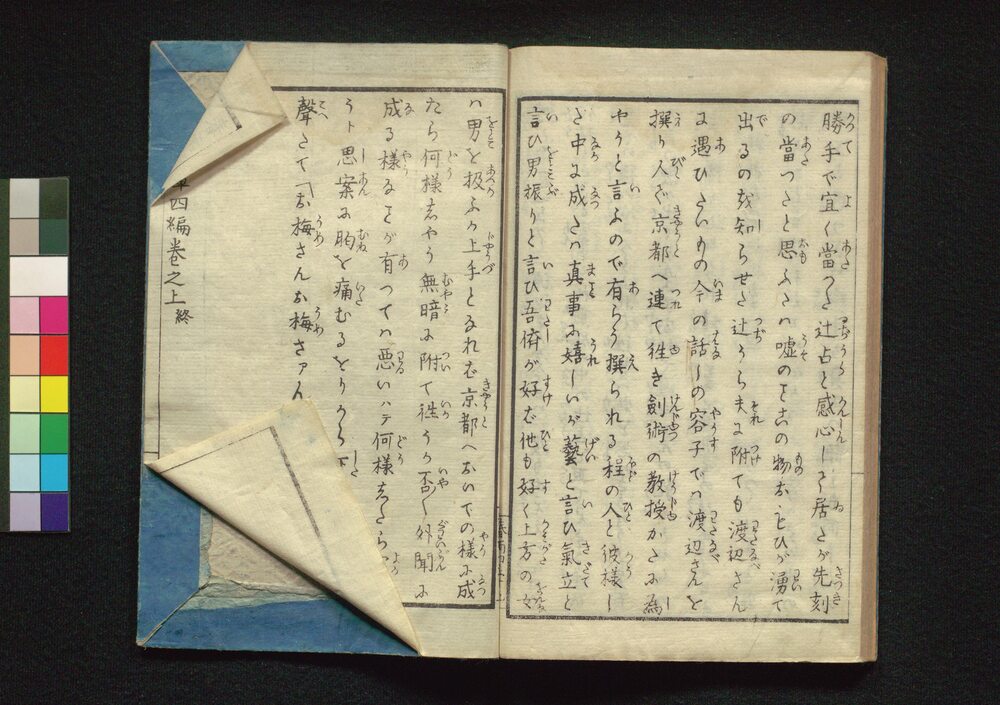 勝手で宜く當つた辻占と感心して居たが先刻
の當つたと思ふたハ嘘のことの物お
出るのを知らせた辻うら夫に附ても渡辺さん
に遇ひたいもの今の話しの容子でハ渡辺さんを
撰り人で京都へ連て往き劍術の教授かたに為
やうと言ふので有らう撰られる程の人と彼様し
た中に成たハ真事に嬉しいが藝と言ひ氣立と
言ひ男振りと言ひ吾儕が好ば他も好く上方の女
ハ男を扱ふが上手となれば京都へおいでの様に成
たら何様しやう無暗に附て往うか否々外聞に
成る様なことが有つてハ悪いハテ何様したら
うト思案に胸を痛むるをりから下
聲たて「お梅さんお梅さアん
四編巻之上終